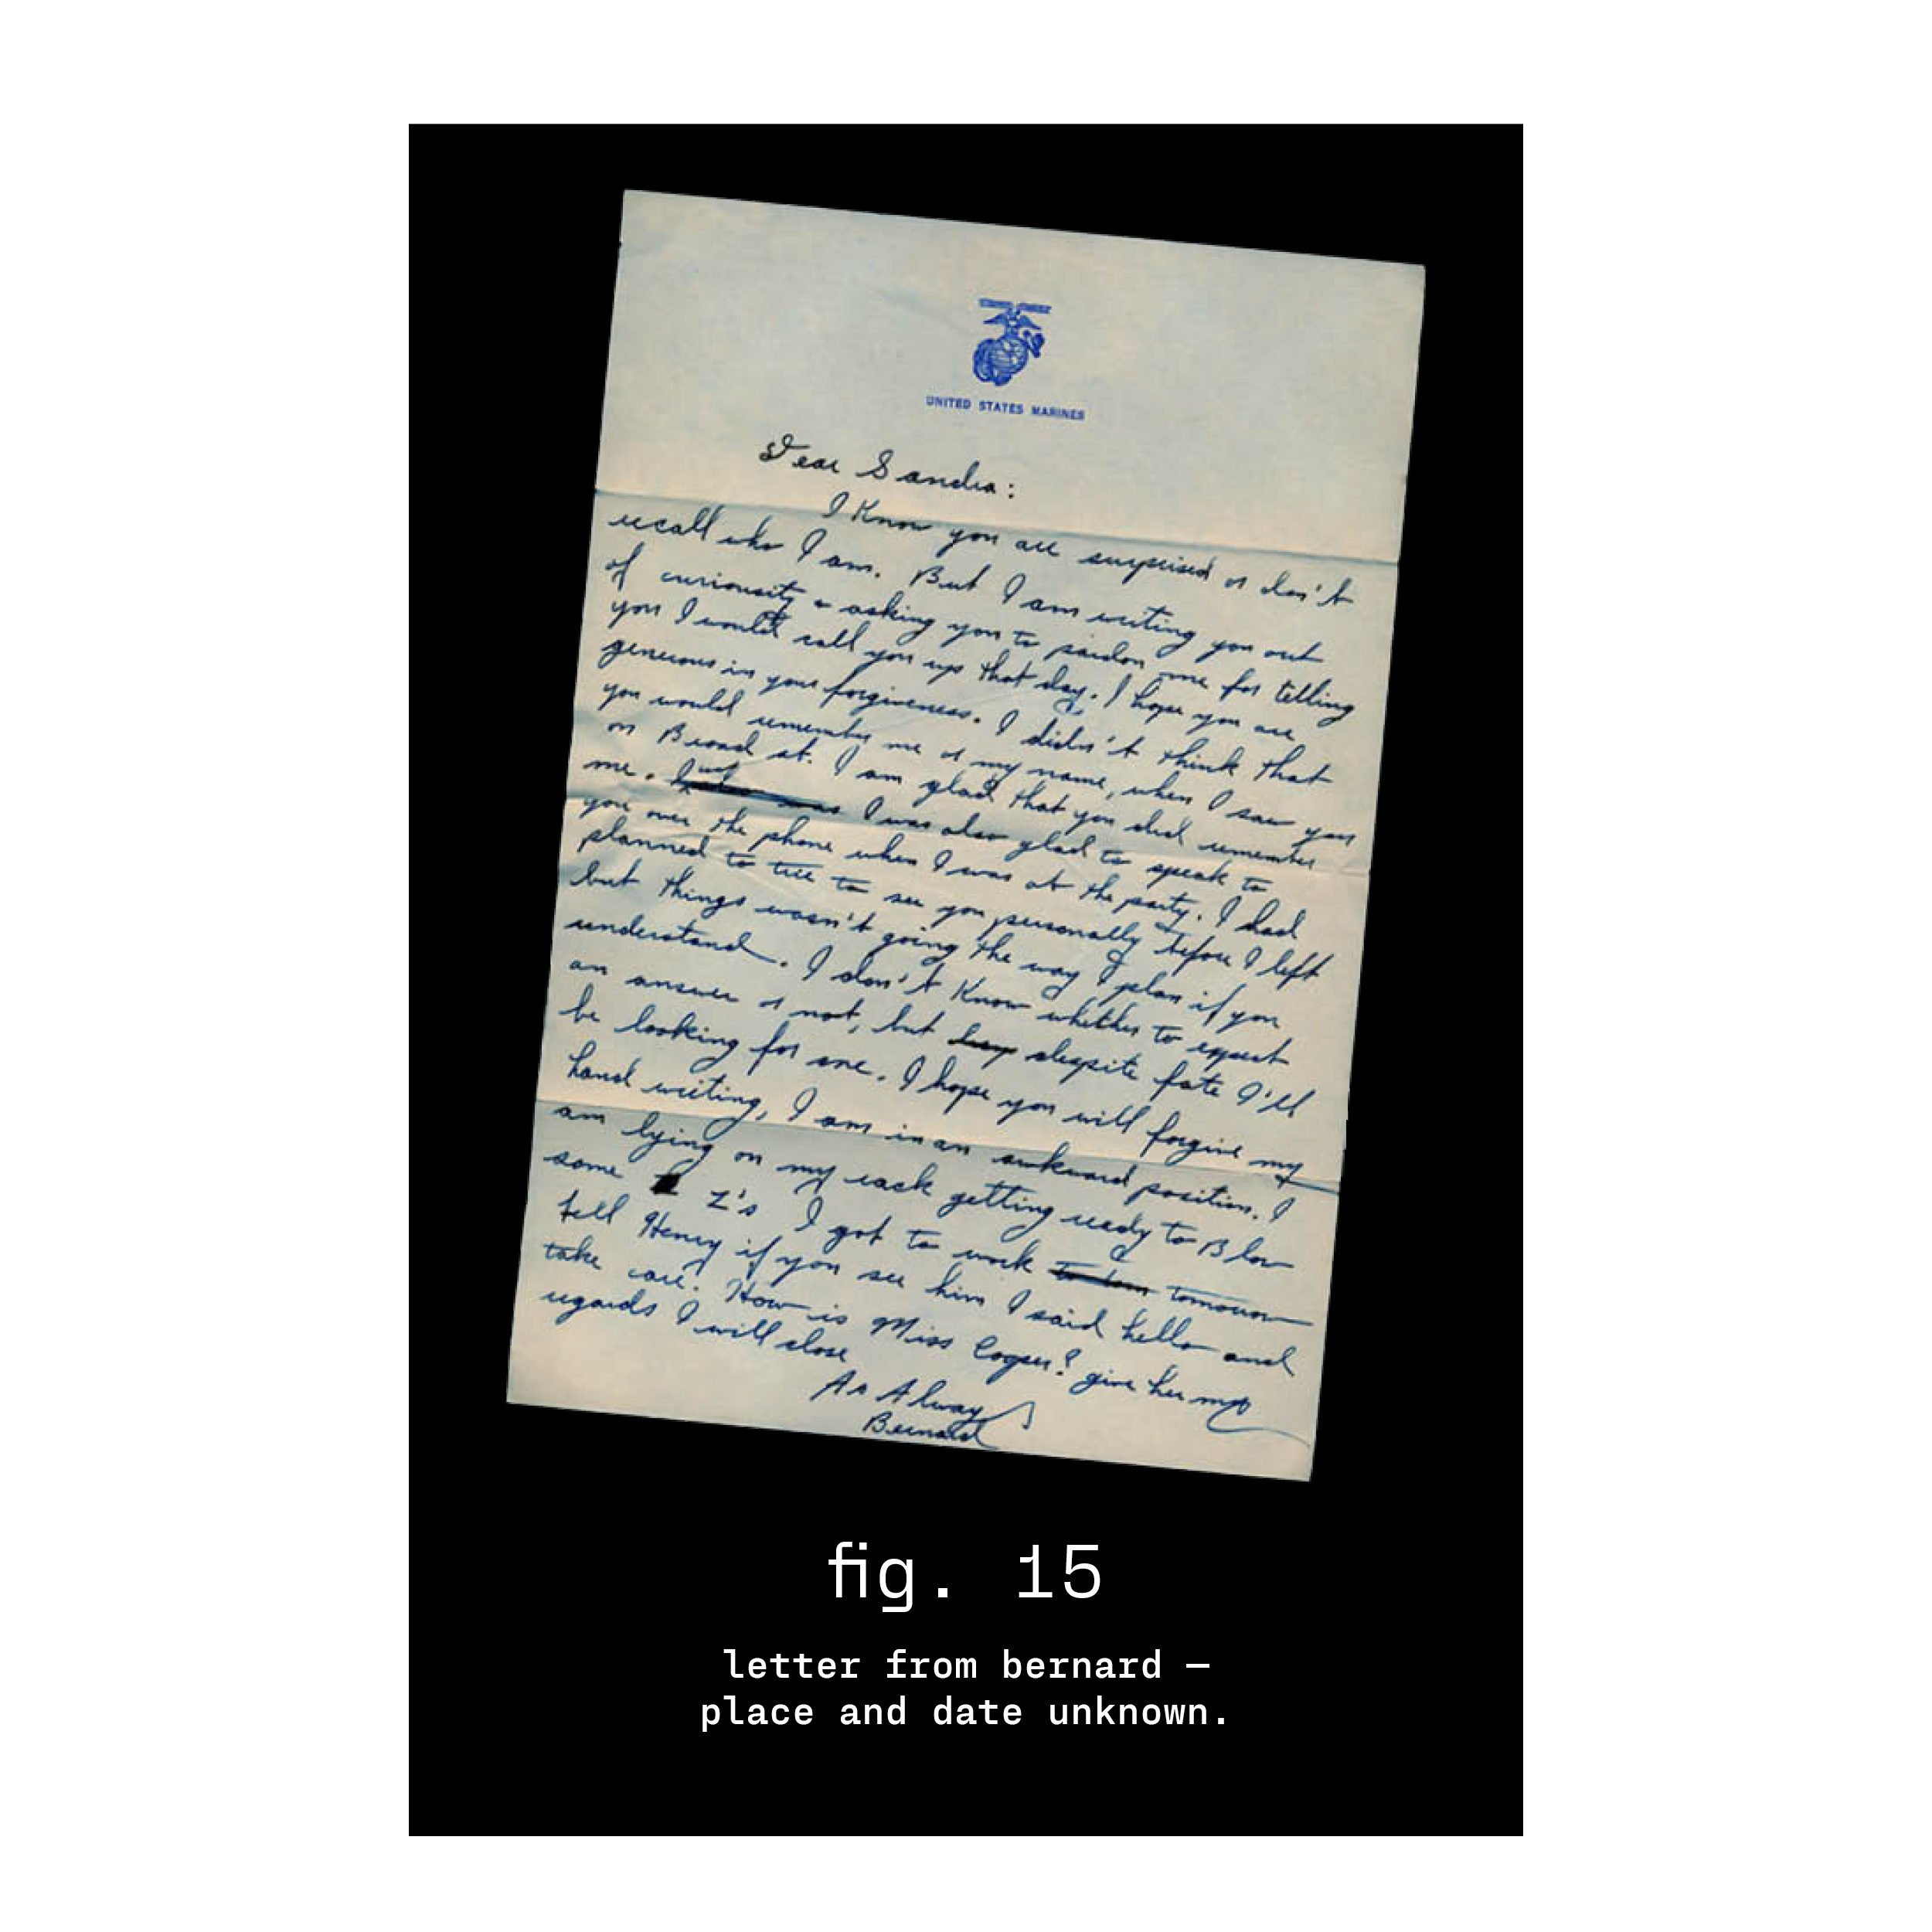 UNITED STATES MARINES
Dear Sandra:
I Know you are surprised or don't
recall who I am. But I am writing you out
of curiousity & asking you to pardon me for telling
you I would call you up that day. I hope you are
generous in your forgiveness. I didn't think that
you would remember me or my name, when I saw you
on Broad st. I am glad that you did remember
me. I was also glad to speak to
you over the phone when I was at the party. I had
planned to tree to see you personally before I left
but things wasn't going the way I plan if you
understand. I don't Know whether to expect
an answer or not, but despite fate I'll
be looking for one. I hope you will forgive my
hand writing, I am in an awkward position. I
am lying on my rack getting ready to Blow
some Z's I got to work tomorrow
tell Henry if you see him I said hello and
take care. How is Miss Cooper? give her my
regards I will close
As Always
Bernard
fig. 15
letter from bernard —
place and date unknown.